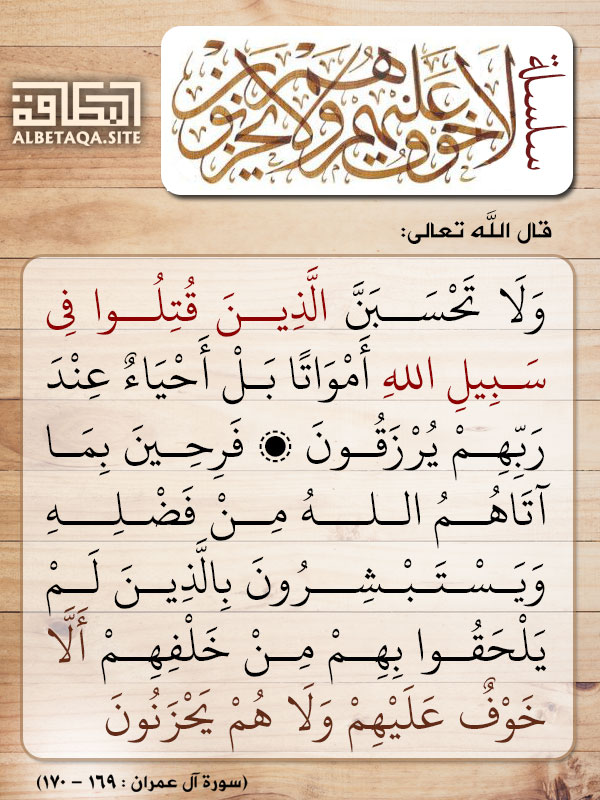 سلسلة
لا خوف عليهم ولا هم يحزنون
البطاقة
ALBETAQA.SITE
قال اللَّه تعالى:
وَلَا تَحْسَبَنَّ الَّذِينَ قُتِلُوا فِي
سَبِيلِ اللهِ أَمْوَاتًا بَلْ أَحْيَاءٌ عِنْدَ
رَبِّهِمْ يُرْزَقُونَ ۝ فَرِحِينَ بِمَا
آتَاهُمُ اللهُ مِنْ فَضْلِهِ
وَيَسْتَبْشِرُونَ بِالَّذِينَ لَمْ
يَلْحَقُوا بِهِمْ مِنْ خَلْفِهِمْ أَلَّا
خَوْفٌ عَلَيْهِمْ وَلَا هُمْ يَحْزَنُونَ
(سورة آل عمران : ١٦٩ – ١٧٠)